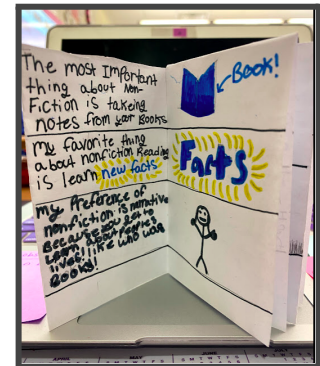 The most Important
thing about Non-
Fiction is takeing
notes from your Books
my favorite thing
about nonfiction Reading
is learn new facts
my Preference of
nonfiction is narrative
Because you get to
Learn about PeoPle's
lives!!! liKe WHO WAS
BOOKS!
Book!
Facts
APRIL
MAY
JUNE
JULY
S M T W T F S